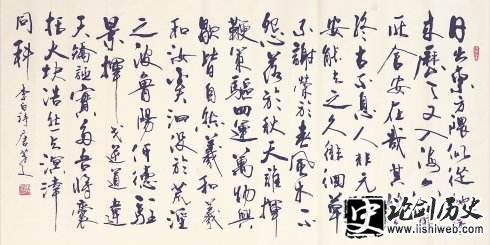 日出東方隈似從地底
來歷天又入海六
所舍安在哉其
終古不息人非元
安能與之久徘徊草
不謝榮於春風木不
怨落於秋天誰揮
鞭策驅四運萬物興
歇皆自然羲和羲
和汝奚汨沒於荒淫
之波魯陽何德駐
景揮戈逆道違
天矯誣實多吾將囊
括大塊浩然與溟涬
同科
李白詩
史 论创历史
www.lishiweb.com